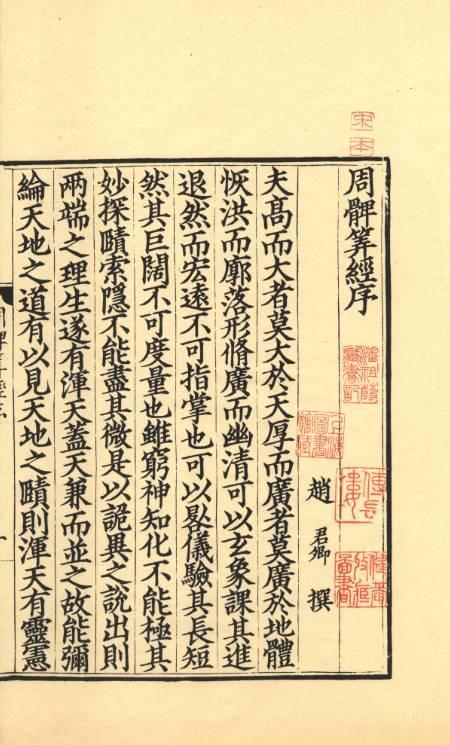 周髀筭經序
趙君卿撰
夫髙而大者莫大於天厚而廣者莫廣於地體
恢洪而廓落形脩廣而幽清可以玄象課其進
退然而宏遠不可指掌也可以晷儀驗其長短
然其巨闊不可度量也雖窮神知化不能極其
妙探賾索隱不能盡其微是以詭異之說出則
兩端之理生遂有渾天蓋天兼而並之故能彌
綸天地之道有以見天地之賾則渾天有靈憲
宋本
上海圖書館藏